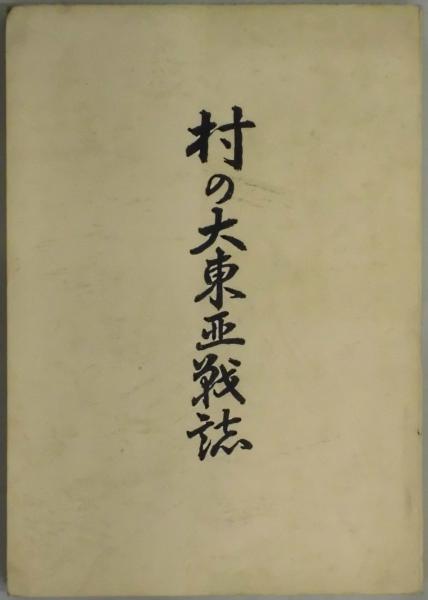 村の大東亜戦誌